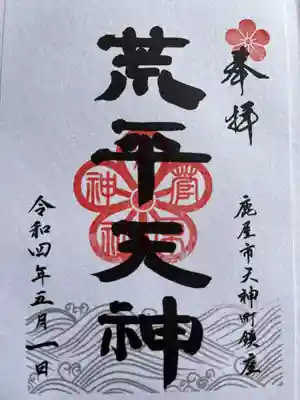 奉拝
鹿屋市天神町鎮座
荒平天神
菅
神
令和四年五月一日